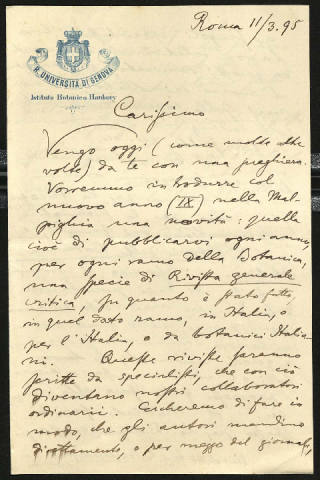 R. UNIVERSITÀ DI GENOVA
Istituto Botanico Hanbury
Roma 11/3.95
Carissimo
Vengo oggi (come molte altre
volte) da te con una preghiera.
Vorremmo introdurre col
nuovo anno (IX) nella Mal-
pighia una novità: quella
cioè di pubblicarvi ogni anno,
per ogni ramo della Botanica,
una specie di Rivista generale
critica, su quanto è stato fatto,
in quel dato ramo, in Italia, o
per l'Italia, o da botanici Italia-
ni. Queste riviste saranno
scritte da specialisti, che con ciò
diventano nostri collaboratori
ordinarii. Cercheremo di fare in
modo, che gli autori mandino
direttamente, o per mezzo del giornale,